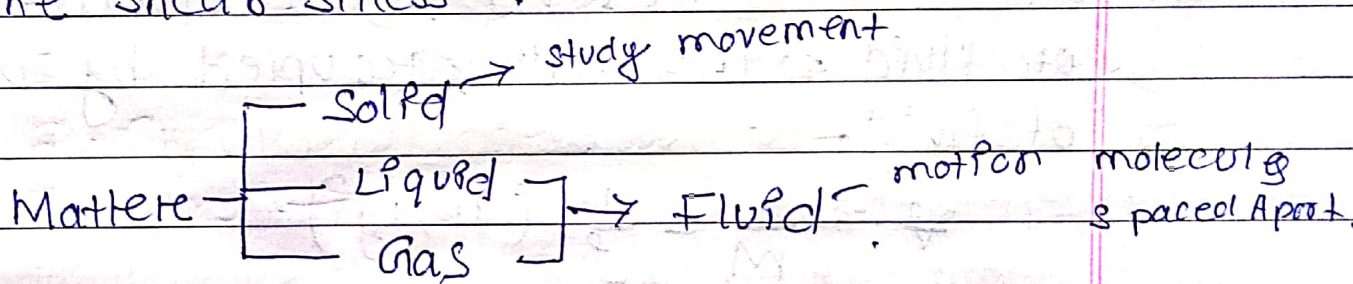 study movement
Solid
Liquid
Mattere Fluid motion molecules
spaced Apart
Gas